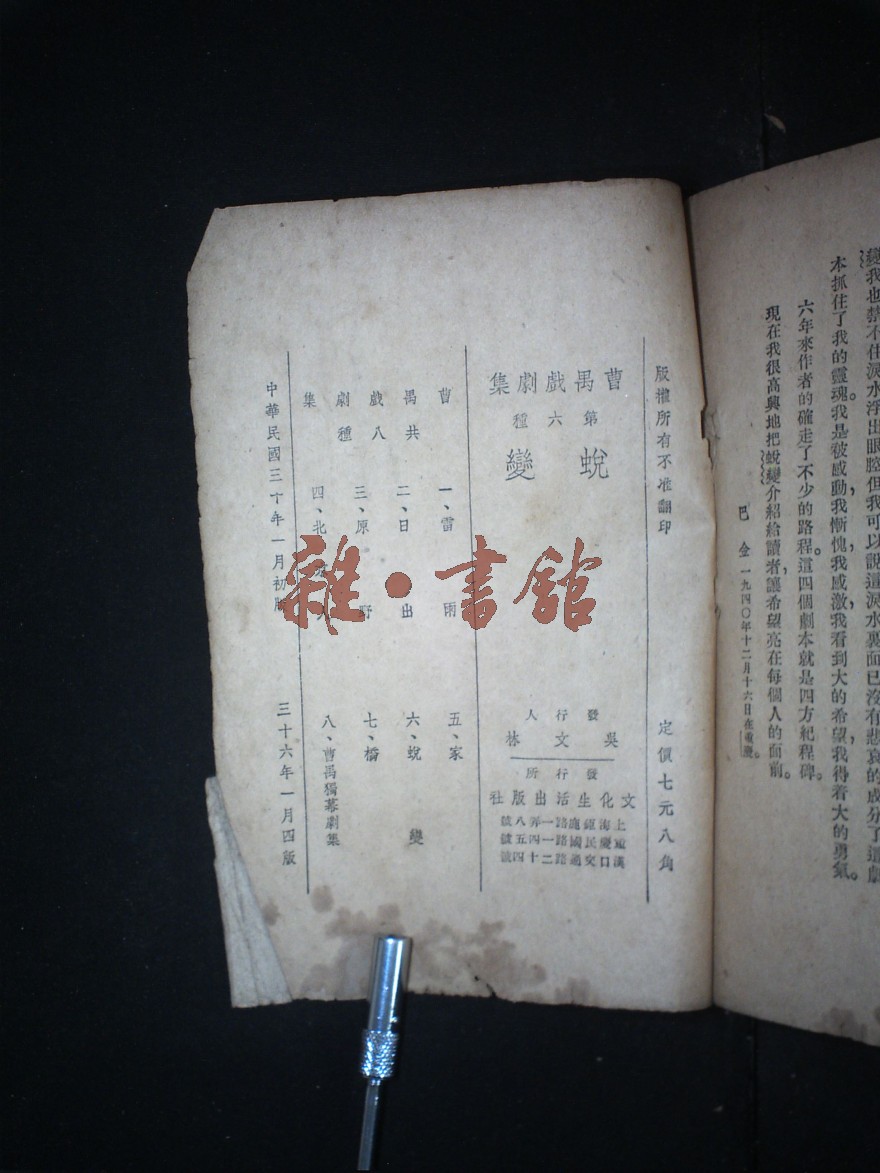 變我也禁不住淚水浮出眼腔但我可以說這淚水裏面已沒有悲哀的成分了這劇
本抓住了我的靈魂，我是被感動，我慚愧，我感激，我看到大的希望，我得着大的勇氣。
六年來作者的確走了不少的路程。這四個劇本就是四方紀程碑。
現在我很高興地把蛻變介紹給讀者，讓希望亮在每個人的面前。
巴 金 一九四〇年十二月十六日在重慶。
版權所有不准翻印
定價七元八角
曹禺戲劇集
第六種
蛻變
發行人
吳文林
發行所
文化生活出版社
上海鉅鹿路一弄八號
重慶民國路一四五號
漢口交通路二十四號
曹禺戲劇集
共八種
一、雷雨
二、日出
三、原野
四、北京人
五、家
六、蛻變
七、橋
八、曹禺獨幕劇集
中華民國三十年一月初版
三十六年一月四版
雜·書館